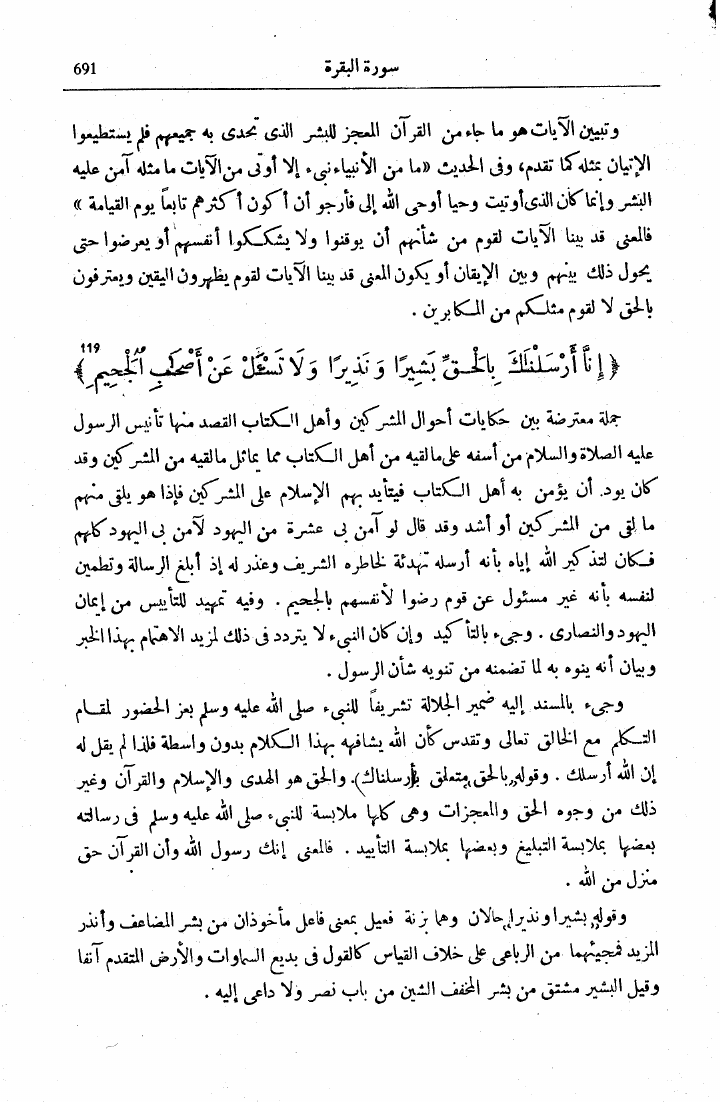 سورة البقرة 691
وتبيين الآيات هو ما جاء من القرآن المعجز للبشر الذى تحدى به جميعهم فلم يستطيعوا
الإتيان بمثله كما تقدم، وفى الحديث «ما من الأنبياء نبىء إلا أوتى من الآيات ما مثله آمن عليه
البشر وإنما كان الذى أوتيت وحيا أوحى الله إلى فأرجو أن أكون أكثرهم تابعاً يوم القيامة»
فالمعنى قد بينا الآيات لقوم من شأنهم أن يوقنوا ولا يشككوا أنفسهم أو يعرضوا حتى
يحول ذلك بينهم وبين الإيقان أو يكون المعنى قد بينا الآيات لقوم يظهرون اليقين ويعترفون
بالحق لا لقوم مثلكم من المكابرين .
﴿ إِنَّآ أَرْسَلْنَٰكَ بِالْحَقِّ بَشِيرًا وَنَذِيرًا وَلَا تَسْـَٔلْ عَنْ أَصْحَٰبِ ٱلْجَحِيمِ ﴾ 119
جملة معترضة بين حكايات أحوال المشركين وأهل الكتاب القصد منها تأنيس الرسول
عليه الصلاة والسلام من أسفه على ما لقيه من أهل الكتاب مما يماثل ما لقيه من المشركين وقد
كان يود أن يؤمن به أهل الكتاب فيتأيد بهم الإسلام على المشركين فإذا هو يلقى منهم
ما لقى من المشركين أو أشد وقد قال لو آمن بى عشرة من اليهود لآمن بى اليهود كلهم
فكان لتذكير الله إياه بأنه أرسله تهدئة لخاطره الشريف وعذر له إذ أبلغ الرسالة وتطمين
لنفسه بأنه غير مسئول عن قوم رضوا لأنفسهم بالجحيم . وفيه تمهيد للتأييس من إيمان
اليهود والنصارى . وجىء بالتأكيد وإن كان النبىء لا يتردد فى ذلك لمزيد الاهتمام بهذا الخبر
وبيان أنه ينوه به لما تضمنه من تنويه شأن الرسول .
وجىء بالمسند إليه ضمير الجلالة تشريفاً للنبىء صلى الله عليه وسلم بعز الحضور لمقام
التكلم مع الخالق تعالى وتقدس كأن الله يشافهه بهذا الكلام بدون واسطة فلذا لم يقل له
إن الله أرسلك . وقوله «بالحق» متعلق بـ(أرسلناك). والحق هو الهدى والإسلام والقرآن وغير
ذلك من وجوه الحق والمعجزات وهى كلها ملابسة للنبىء صلى الله عليه وسلم فى رسالته
بعضها بملابسة التبليغ وبعضها بملابسة التأييد . فالمعنى إنك رسول الله وأن القرآن حق
منزل من الله .
وقوله «بشيرا ونذيرا» حالان وهما بزنة فعيل بمعنى فاعل مأخوذان من بشر المضاعف وأنذر
المزيد فمجيئهما من الرباعى على خلاف القياس كالقول فى بديع السماوات والأرض المتقدم آنفا
وقيل البشير مشتق من بشر المخفف الشين من باب نصر ولا داعى إليه .